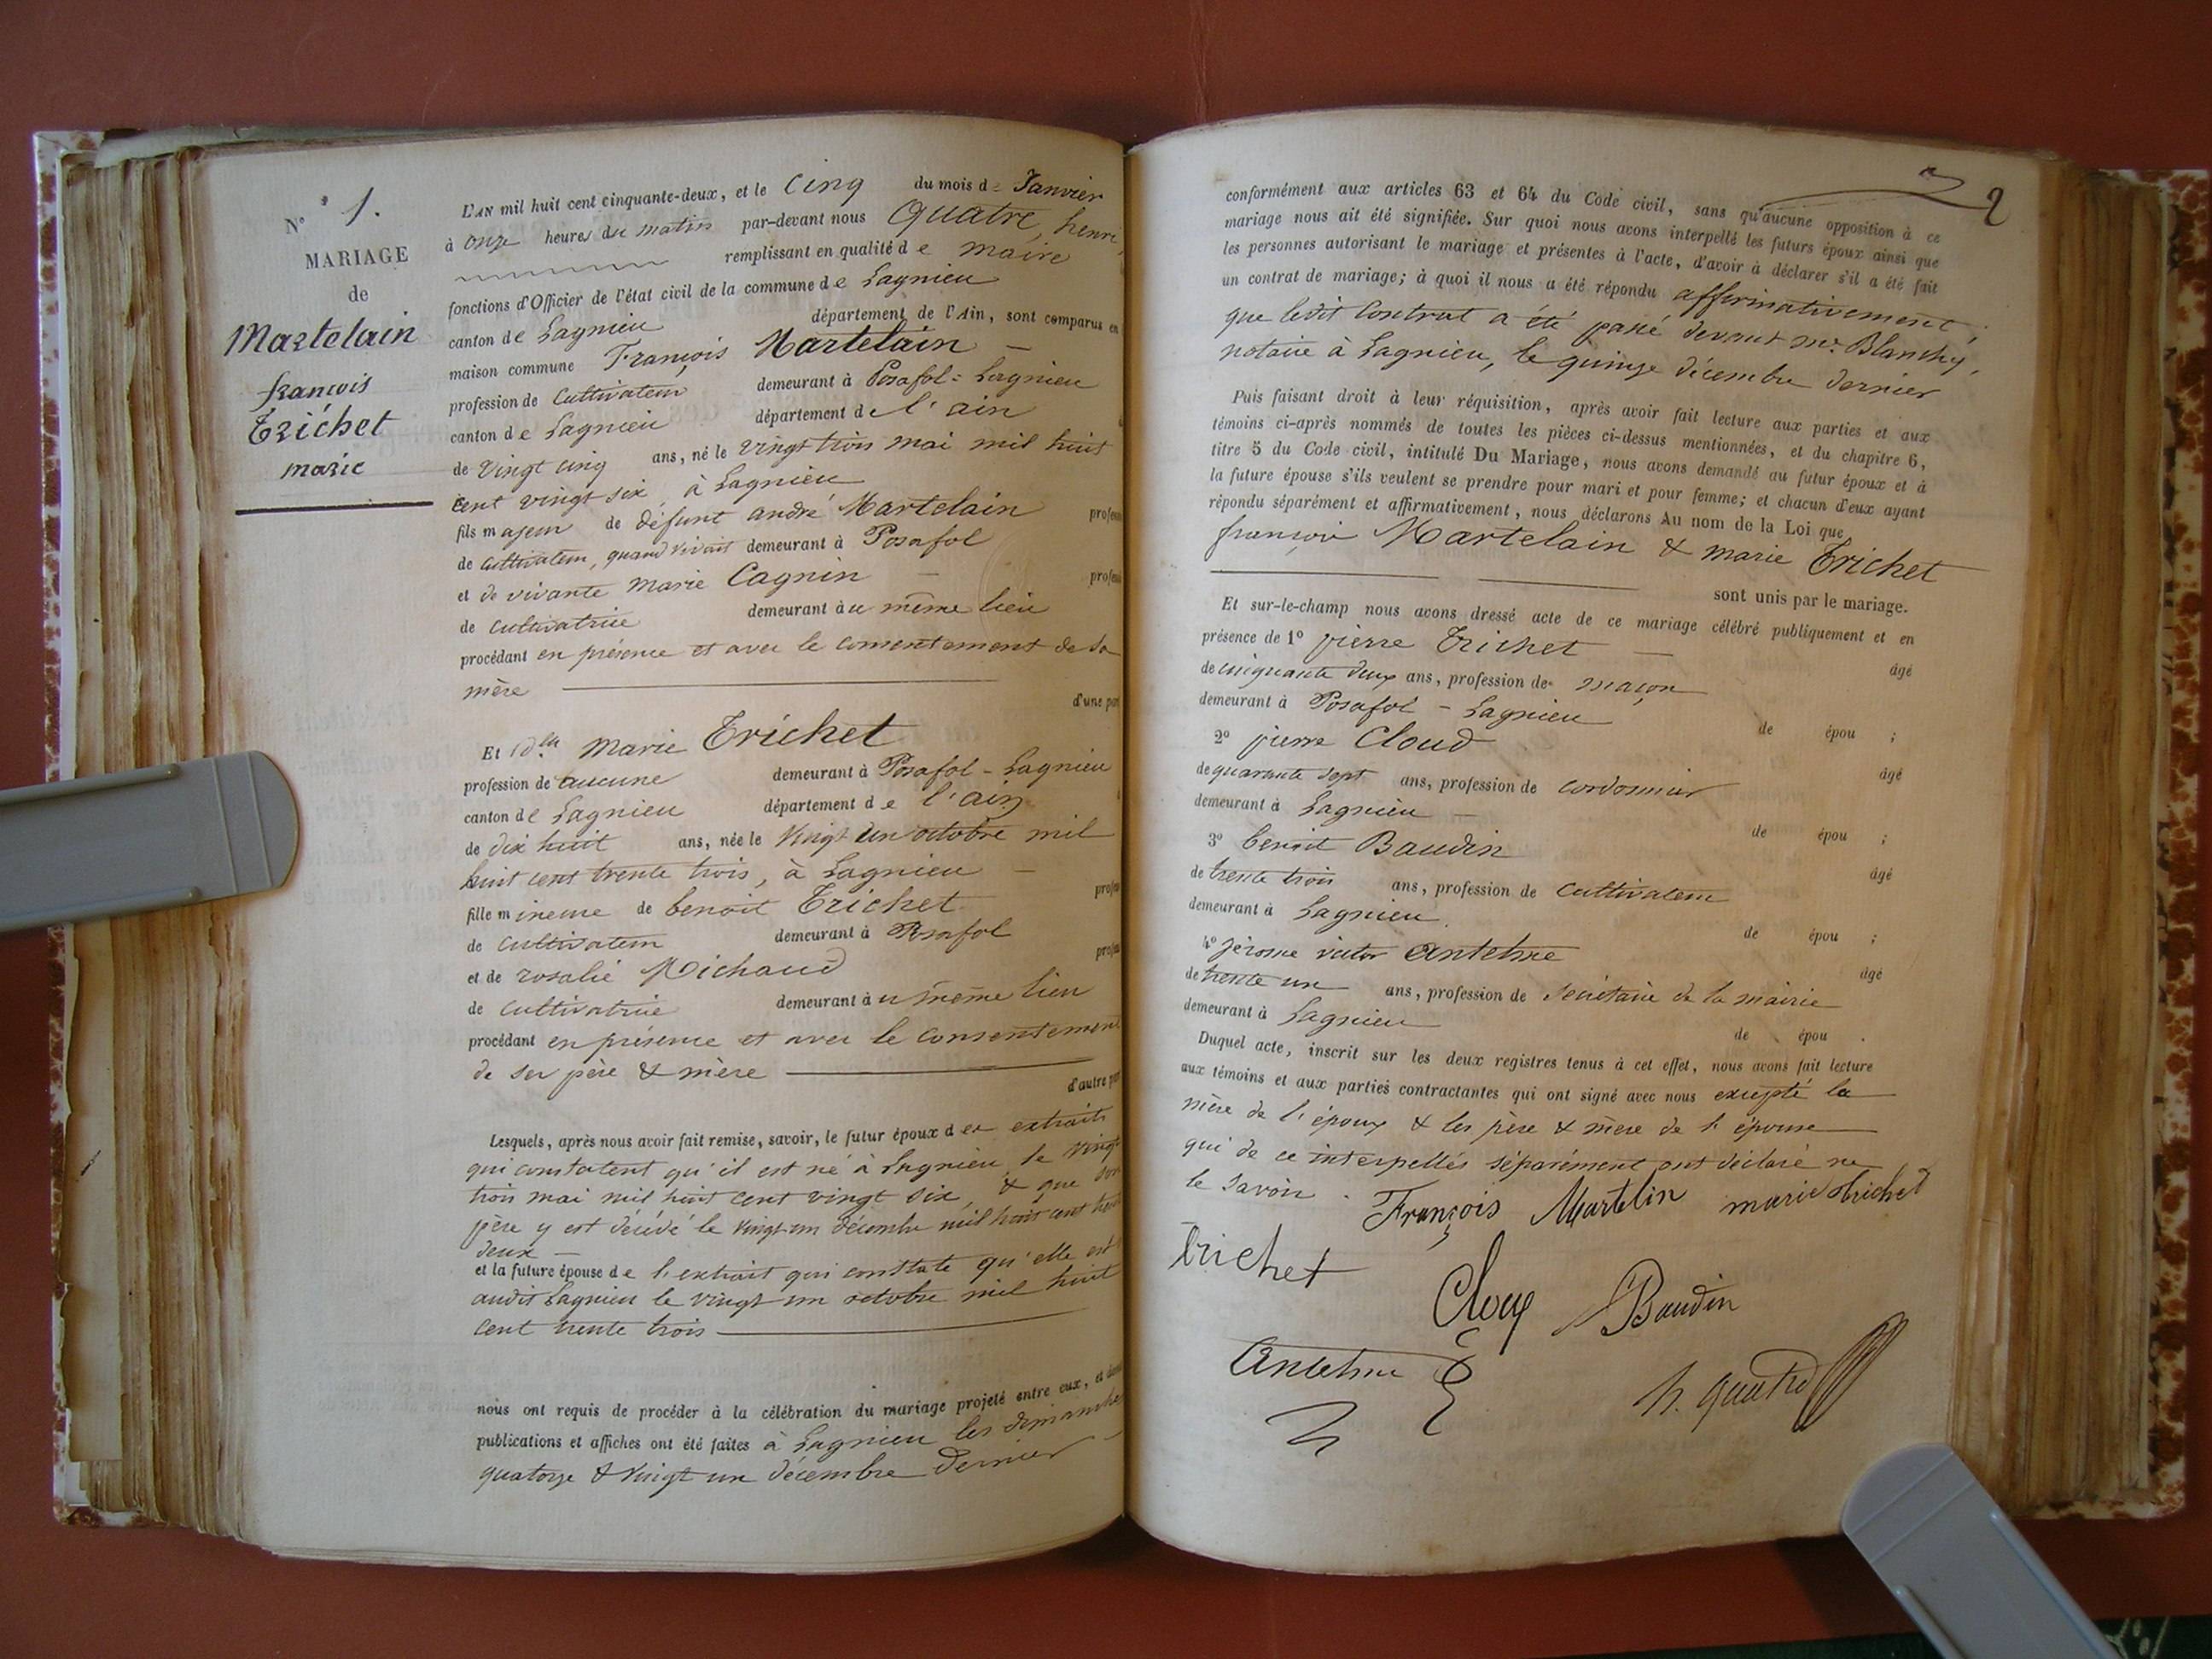 N° 1.
MARIAGE
de
Martelain
françois
Trichet
marie
L'AN mil huit cent cinquante-deux, et le Cinq du mois de Janvier
à onze heures du matin par-devant nous Quatre, henri,
remplissant en qualité de maire
fonctions d'Officier de l'état civil de la commune de Lagnieu
canton de Lagnieu département de l'Ain, sont comparus en
maison commune François Martelain
profession de Cultivateur demeurant à Posafol = Lagnieu
canton de Lagnieu département de l'ain
de Vingt cinq ans, né le vingt trois mai mil huit
cent vingt six, à Lagnieu
fils majeur de défunt andré Martelain profession
de Cultivateur, quand vivait demeurant à Posafol
et de vivante Marie Cagnin profession
de cultivatrice demeurant au même lieu
procédant en présence et avec le consentement de sa
mère
d'une part
Et Marie Trichet
profession de aucune demeurant à Posafol - Lagnieu
canton de Lagnieu département de l'ain
de dix huit ans, née le Vingt un octobre mil
huit cent trente trois, à Lagnieu
fille mineure de benoit Trichet profession
de cultivateur demeurant à Posafol
et de rosalie Michaud profession
de cultivatrice demeurant au même lieu
procédant en présence et avec le consentement
de ses père & mère
d'autre part
Lesquels, après nous avoir fait remise, savoir, le futur époux des extraits
qui constatent qu'il est né à Lagnieu le vingt
trois mai mil huit cent vingt six, & que son
père y est décédé le vingt-un décembre mil huit cent trente
deux
et la future épouse de l'extrait qui constate qu'elle est
audit Lagnieu le vingt un octobre mil huit
cent trente trois
nous ont requis de procéder à la célébration du mariage projeté entre eux, et dont
publications et affiches ont été faites à Lagnieu les dimanches
quatorze & vingt un décembre dernier
2
conformément aux articles 63 et 64 du Code civil, sans qu'aucune opposition à ce
mariage nous ait été signifiée. Sur quoi nous avons interpellé les futurs époux ainsi que
les personnes autorisant le mariage et présentes à l'acte, d'avoir à déclarer s'il a été fait
un contrat de mariage; à quoi il nous a été répondu affirmativement,
que ledit Contrat a été passé devant Me. Blanchy,
notaire à Lagnieu, le quinze décembre dernier
Puis faisant droit à leur réquisition, après avoir fait lecture aux parties et aux
témoins ci-après nommés de toutes les pièces ci-dessus mentionnées, et du chapitre 6,
titre 5 du Code civil, intitulé Du Mariage, nous avons demandé au futur époux et à
la future épouse s'ils veulent se prendre pour mari et pour femme; et chacun d'eux ayant
répondu séparément et affirmativement, nous déclarons Au nom de la Loi que
françois Martelain & marie Trichet
sont unis par le mariage.
Et sur-le-champ nous avons dressé acte de ce mariage célébré publiquement et en
présence de 1° pierre Trichet âgé
de cinquante deux ans, profession de maçon
demeurant à Posafol - Lagnieu de épou ;
2° pierre Cloud âgé
de quarante sept ans, profession de cordonnier
demeurant à Lagnieu de épou ;
3° benoit Baudin âgé
de trente trois ans, profession de Cultivateur
demeurant à Lagnieu de épou ;
4° jérome victor Antelme âgé
de trente un ans, profession de secrétaire de la mairie
demeurant à Lagnieu de épou .
Duquel acte, inscrit sur les deux registres tenus à cet effet, nous avons fait lecture
aux témoins et aux parties contractantes qui ont signé avec nous excepté la
mère de l'époux & les père & mère de l'épouse
qui de ce interpellés séparément ont déclaré ne
le savoir.
François Martelin marie trichet
trichet
Clouq Baudin
Antelme h. Quatre